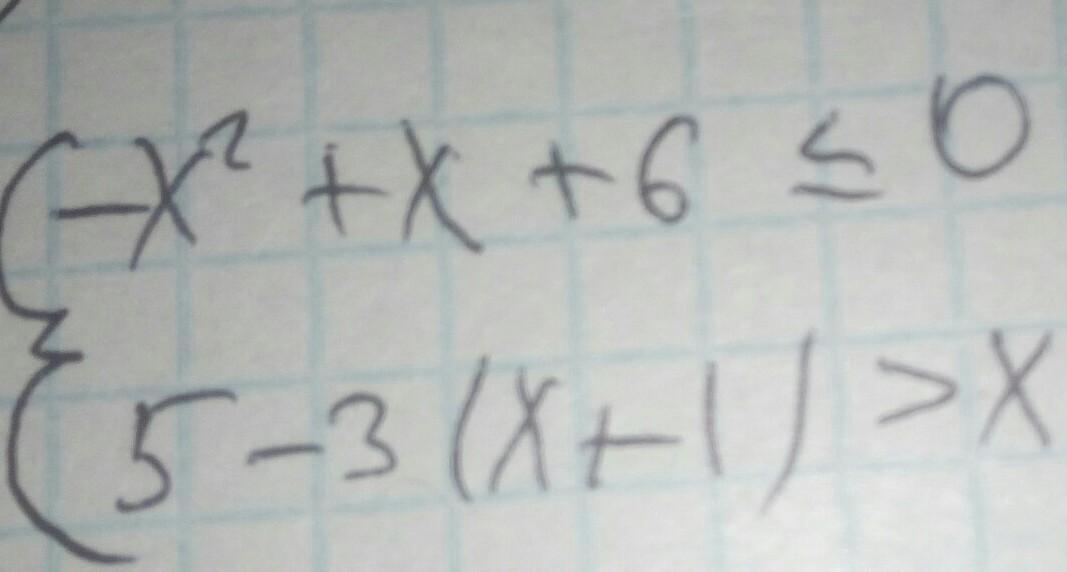 -x² + x + 6 ≤ 0
5 - 3 (x + 1) > x